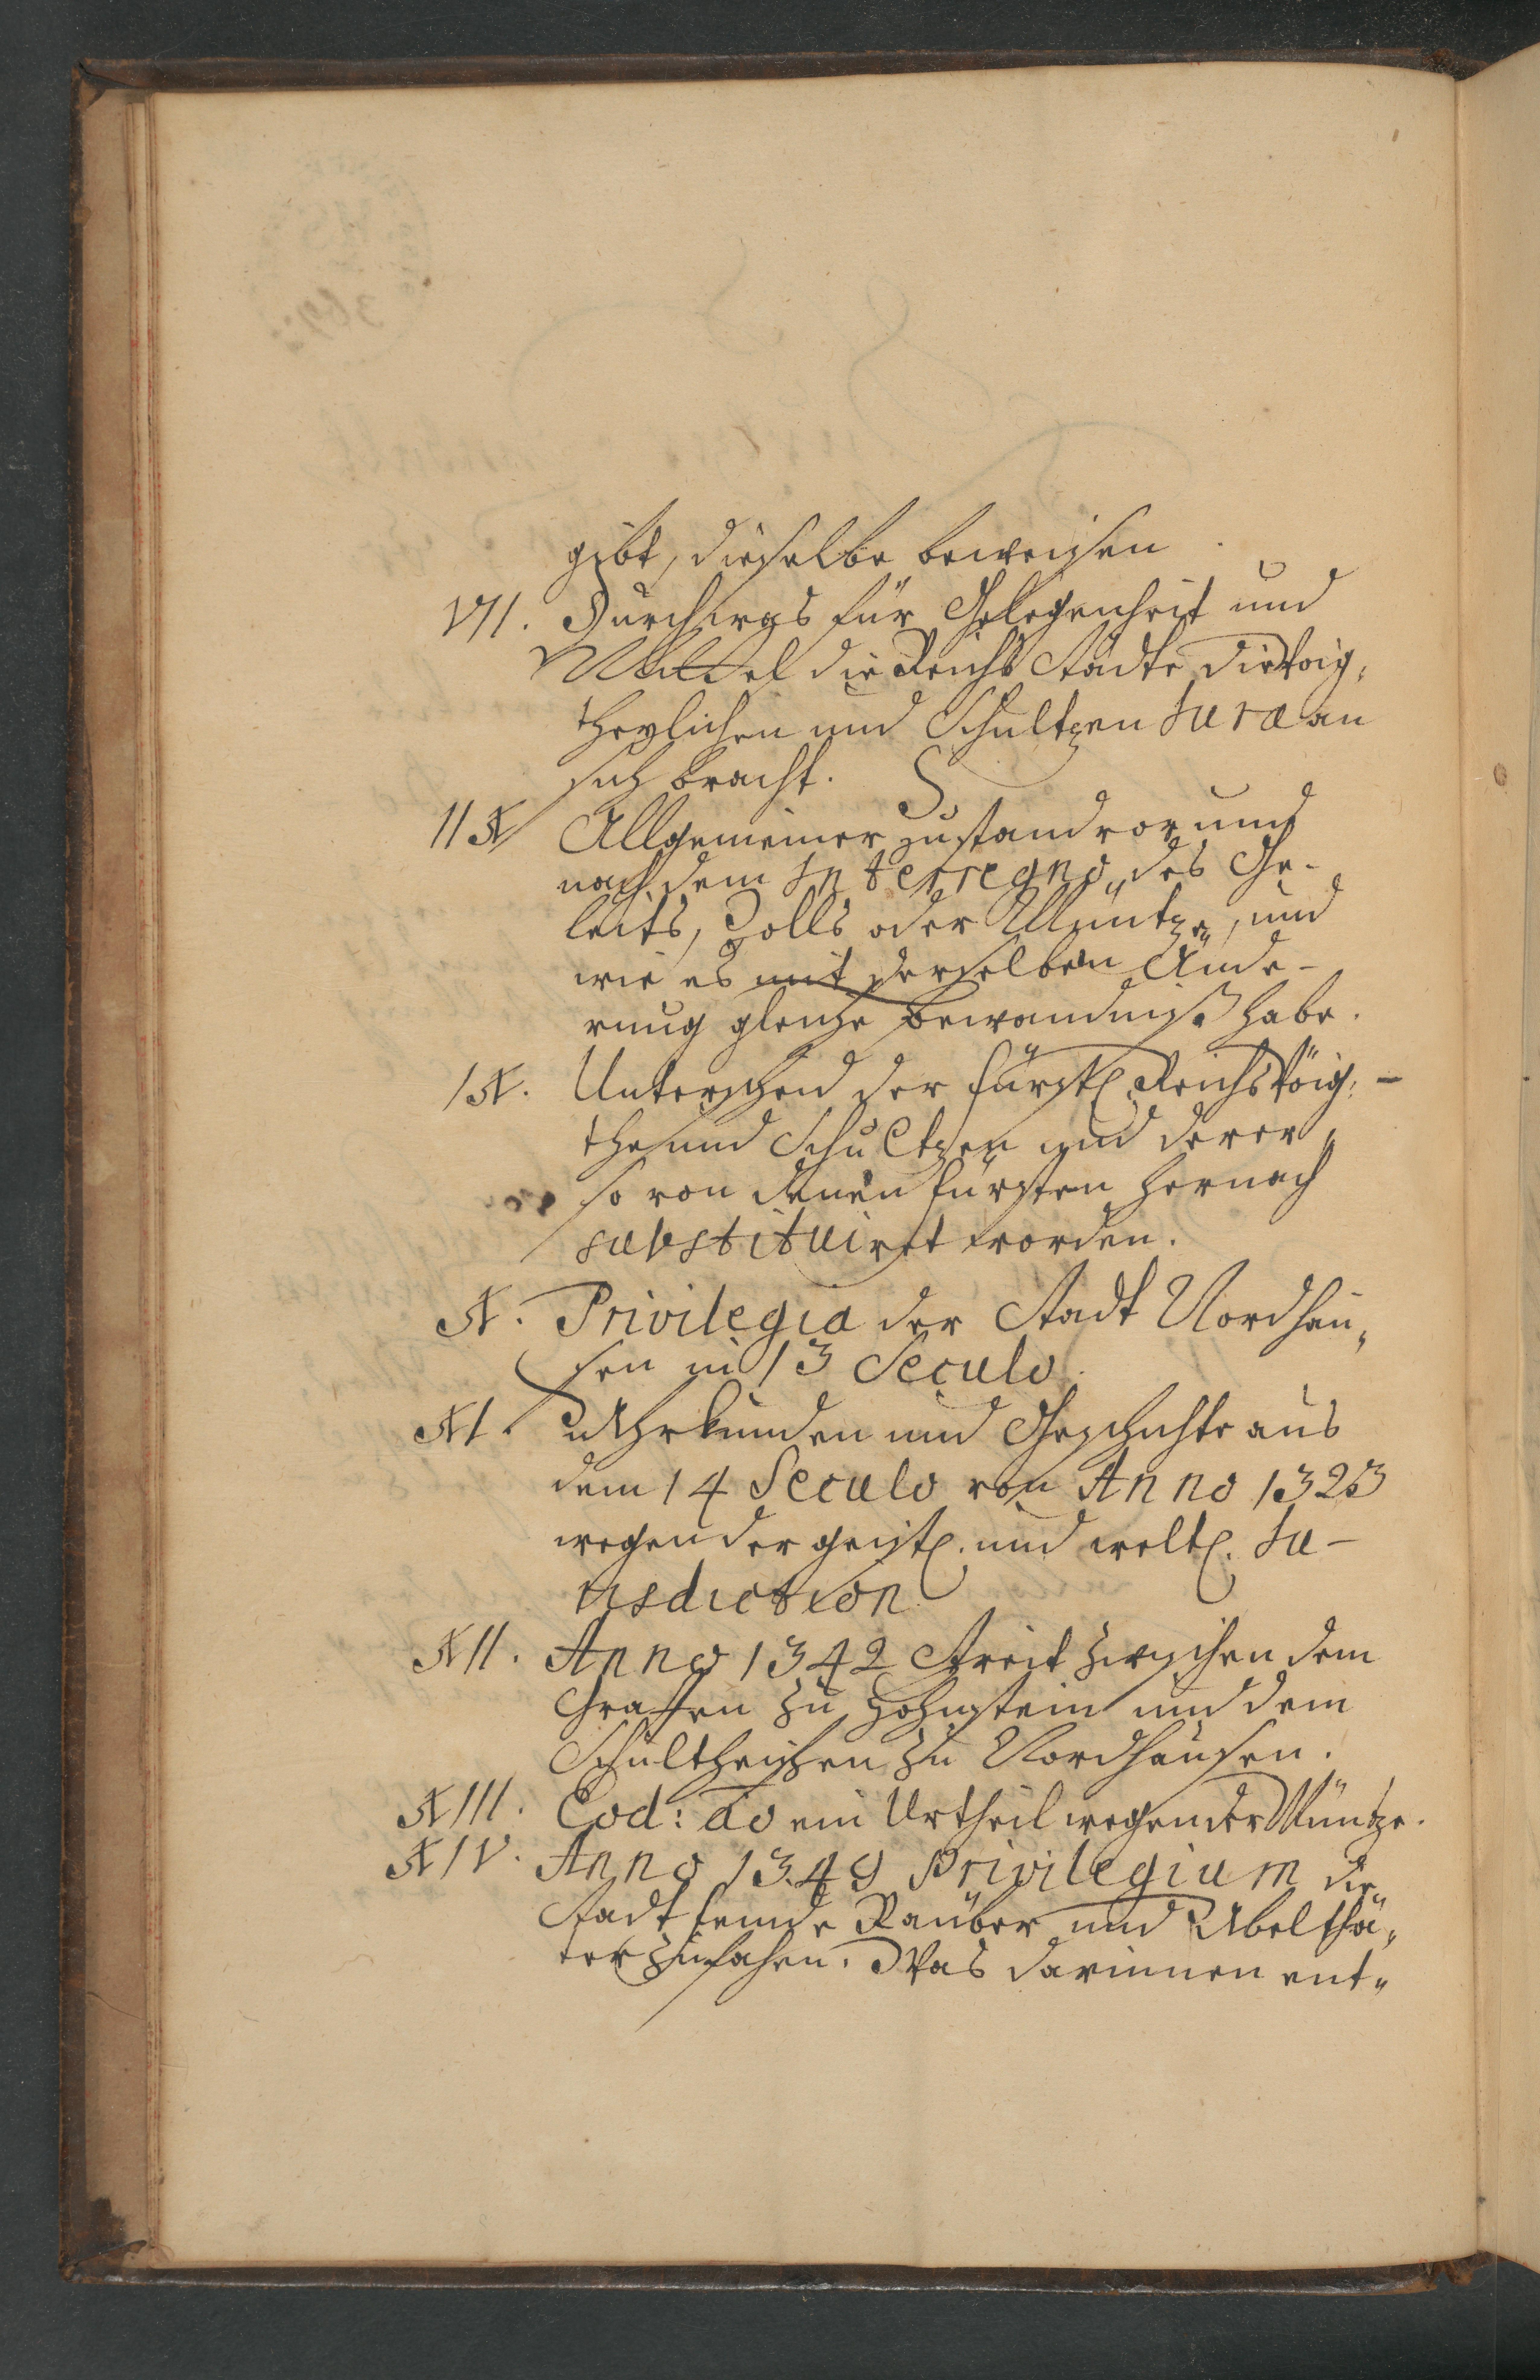 gibt, dieselbe beweisen
VII. Durch was für Gelegenheit und
Mittel die Reichs Städte die Voig„
theylichen und Schultzen Jura an
sich bracht.
IIX Allgemeiner zustand vor und
nach dem Interregno, des Ge-
leits, Zolls oder Müntze, und
wie es mit derselben Ände-
rung gleiche bewandniß habe.
IX. Unterscheid der fürstl. Reichs Vöig„
the und Schultzen und derer„
so von denen fürsten hernach
substituiret worden.
X. Privilegia der Stadt Nordhau„
sen in 13 Seculo.
XI. Uhrkunden und Geschichte aus
dem 14 Seculo von Anno 1323
wegen der geistl. und weltl. Ju-
risdiction
XII. Anno 1342 Streit zwischen dem
Graffen zu Hohnstein und dem
Schultheissen zu Nordhausen.
XIII. Eod: ao ein Urtheil wegen der Müntze.
XIV. Anno 1349 Privilegium die
Stadt feinde Räuber und Ubelthä„
ter zu fahen. Was darinnen ent„